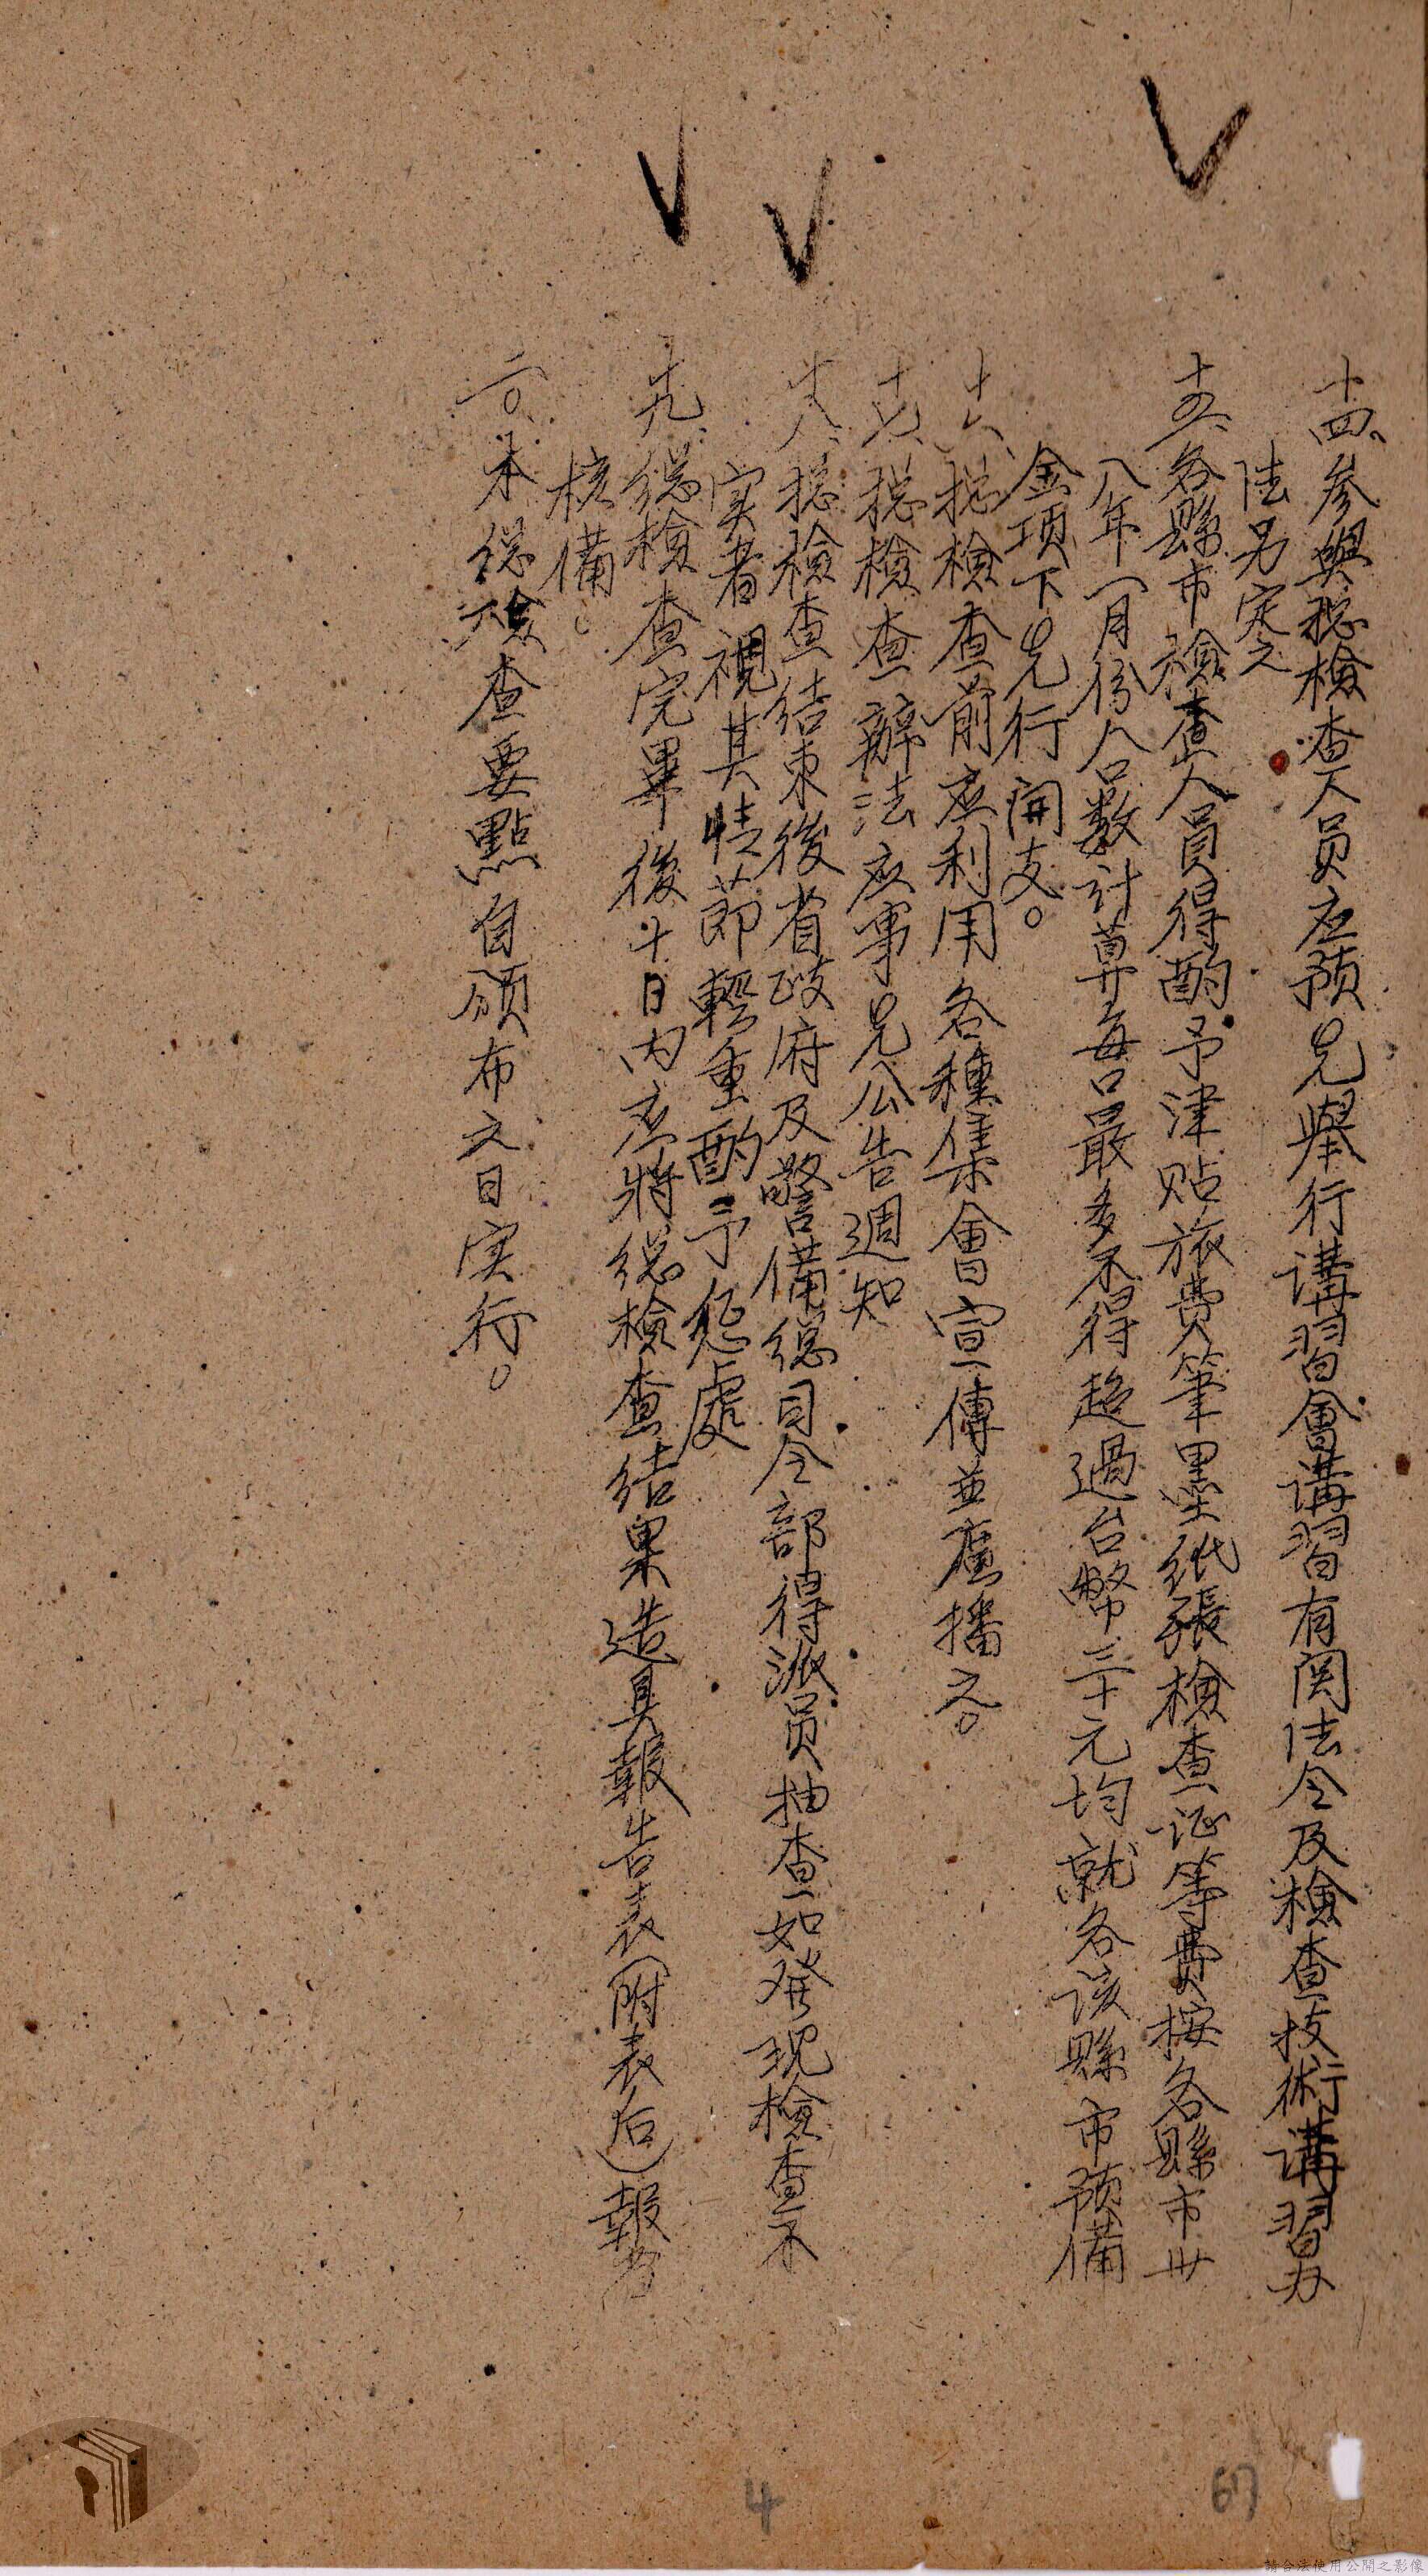 十四、参與総檢查人员应預先舉行講習會講習有関法令及檢查技術講習办
法另定之
十五、各縣市檢查人員得酌予津贴旅費筆墨纸張檢查证等費按各縣市卅
八年一月份人口数計算每口最多不得超過台幣三十元均就各该縣市預備
金項下先行開支。
十六、総檢查前应利用各種集會宣傳並廣播之。
十七、総檢查辦法应事先公告週知
十八、総檢查结束後省政府及警備総司令部得派员抽查如發现檢查不
实者視其情節輕重酌予惩處
十九、総檢查完畢後十日内应将総檢查结果造具報告表(附表后)報省
核備。
二〇、本総檢查要點自頒布之日实行。
4
67
請合法使用公開之影像